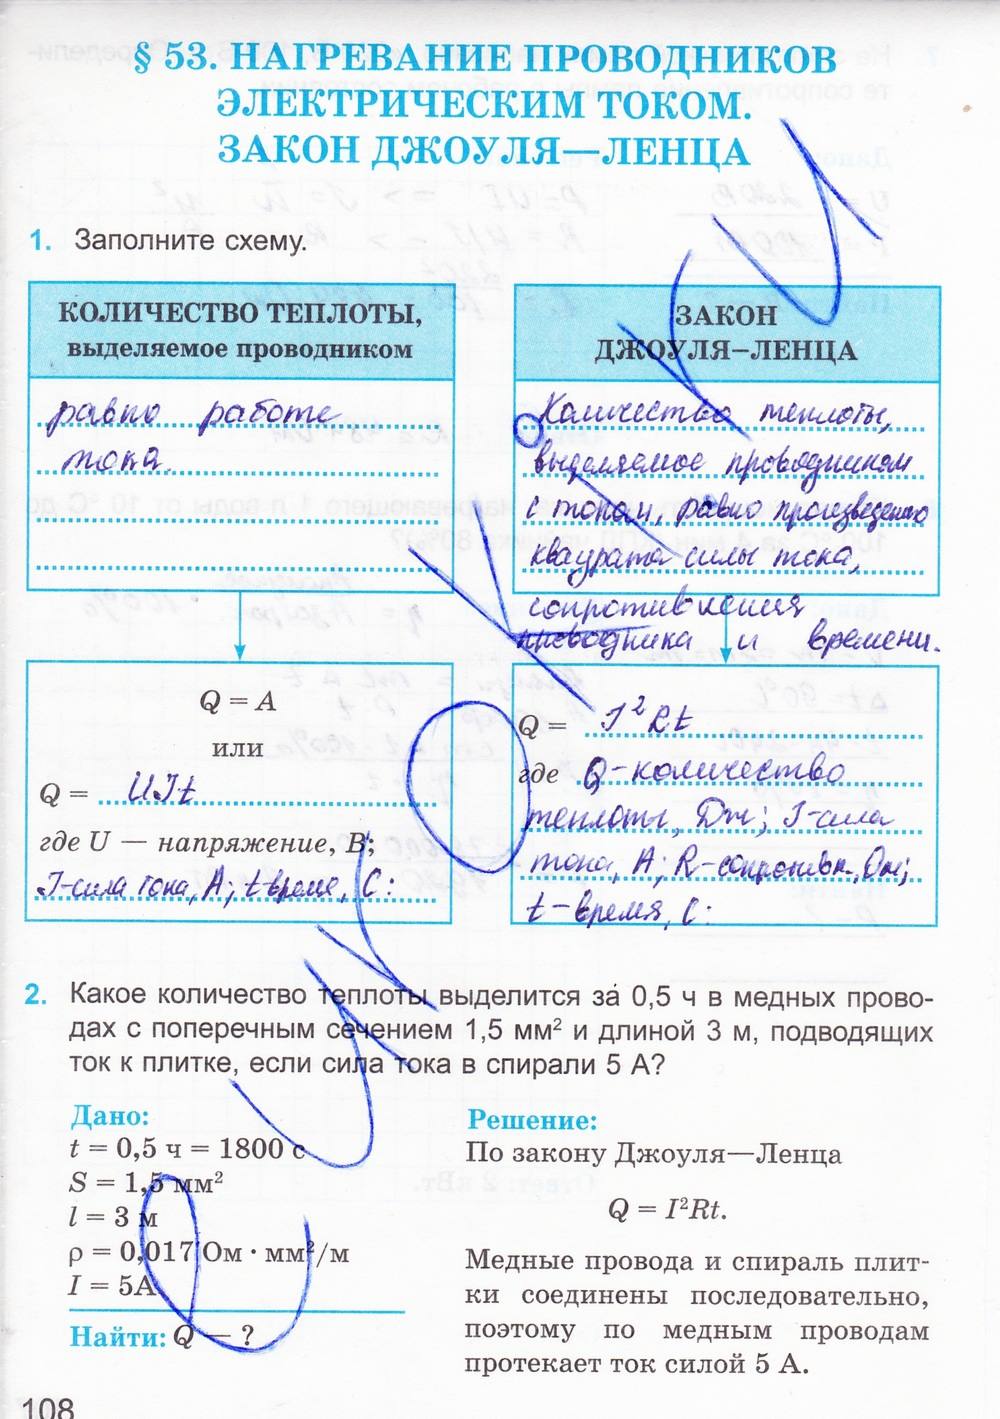 § 53. НАГРЕВАНИЕ ПРОВОДНИКОВ
ЭЛЕКТРИЧЕСКИМ ТОКОМ.
ЗАКОН ДЖОУЛЯ—ЛЕНЦА
1. Заполните схему.
КОЛИЧЕСТВО ТЕПЛОТЫ,
выделяемое проводником
равно работе
тока.
ЗАКОН
ДЖОУЛЯ–ЛЕНЦА
Количество теплоты,
выделяемое проводником
с током, равно произведению
квадрата силы тока,
сопротивления
проводника и времени.
Q = A
или
Q = UIt
где U — напряжение, В;
I-сила тока, А; t время, С:
Q = I²Rt
где Q-количество
теплоты, Дж; I-сила
тока, А; R-сопротивл., Ом;
t-время, С:
2. Какое количество теплоты выделится за 0,5 ч в медных прово-
дах с поперечным сечением 1,5 мм² и длиной 3 м, подводящих
ток к плитке, если сила тока в спирали 5 А?
Дано:
t = 0,5 ч = 1800 с
S = 1,5 мм²
l = 3 м
ρ = 0,017 Ом · мм²/м
I = 5А
Найти: Q — ?
Решение:
По закону Джоуля—Ленца
Q = I²Rt.
Медные провода и спираль плит-
ки соединены последовательно,
поэтому по медным проводам
протекает ток силой 5 А.
108